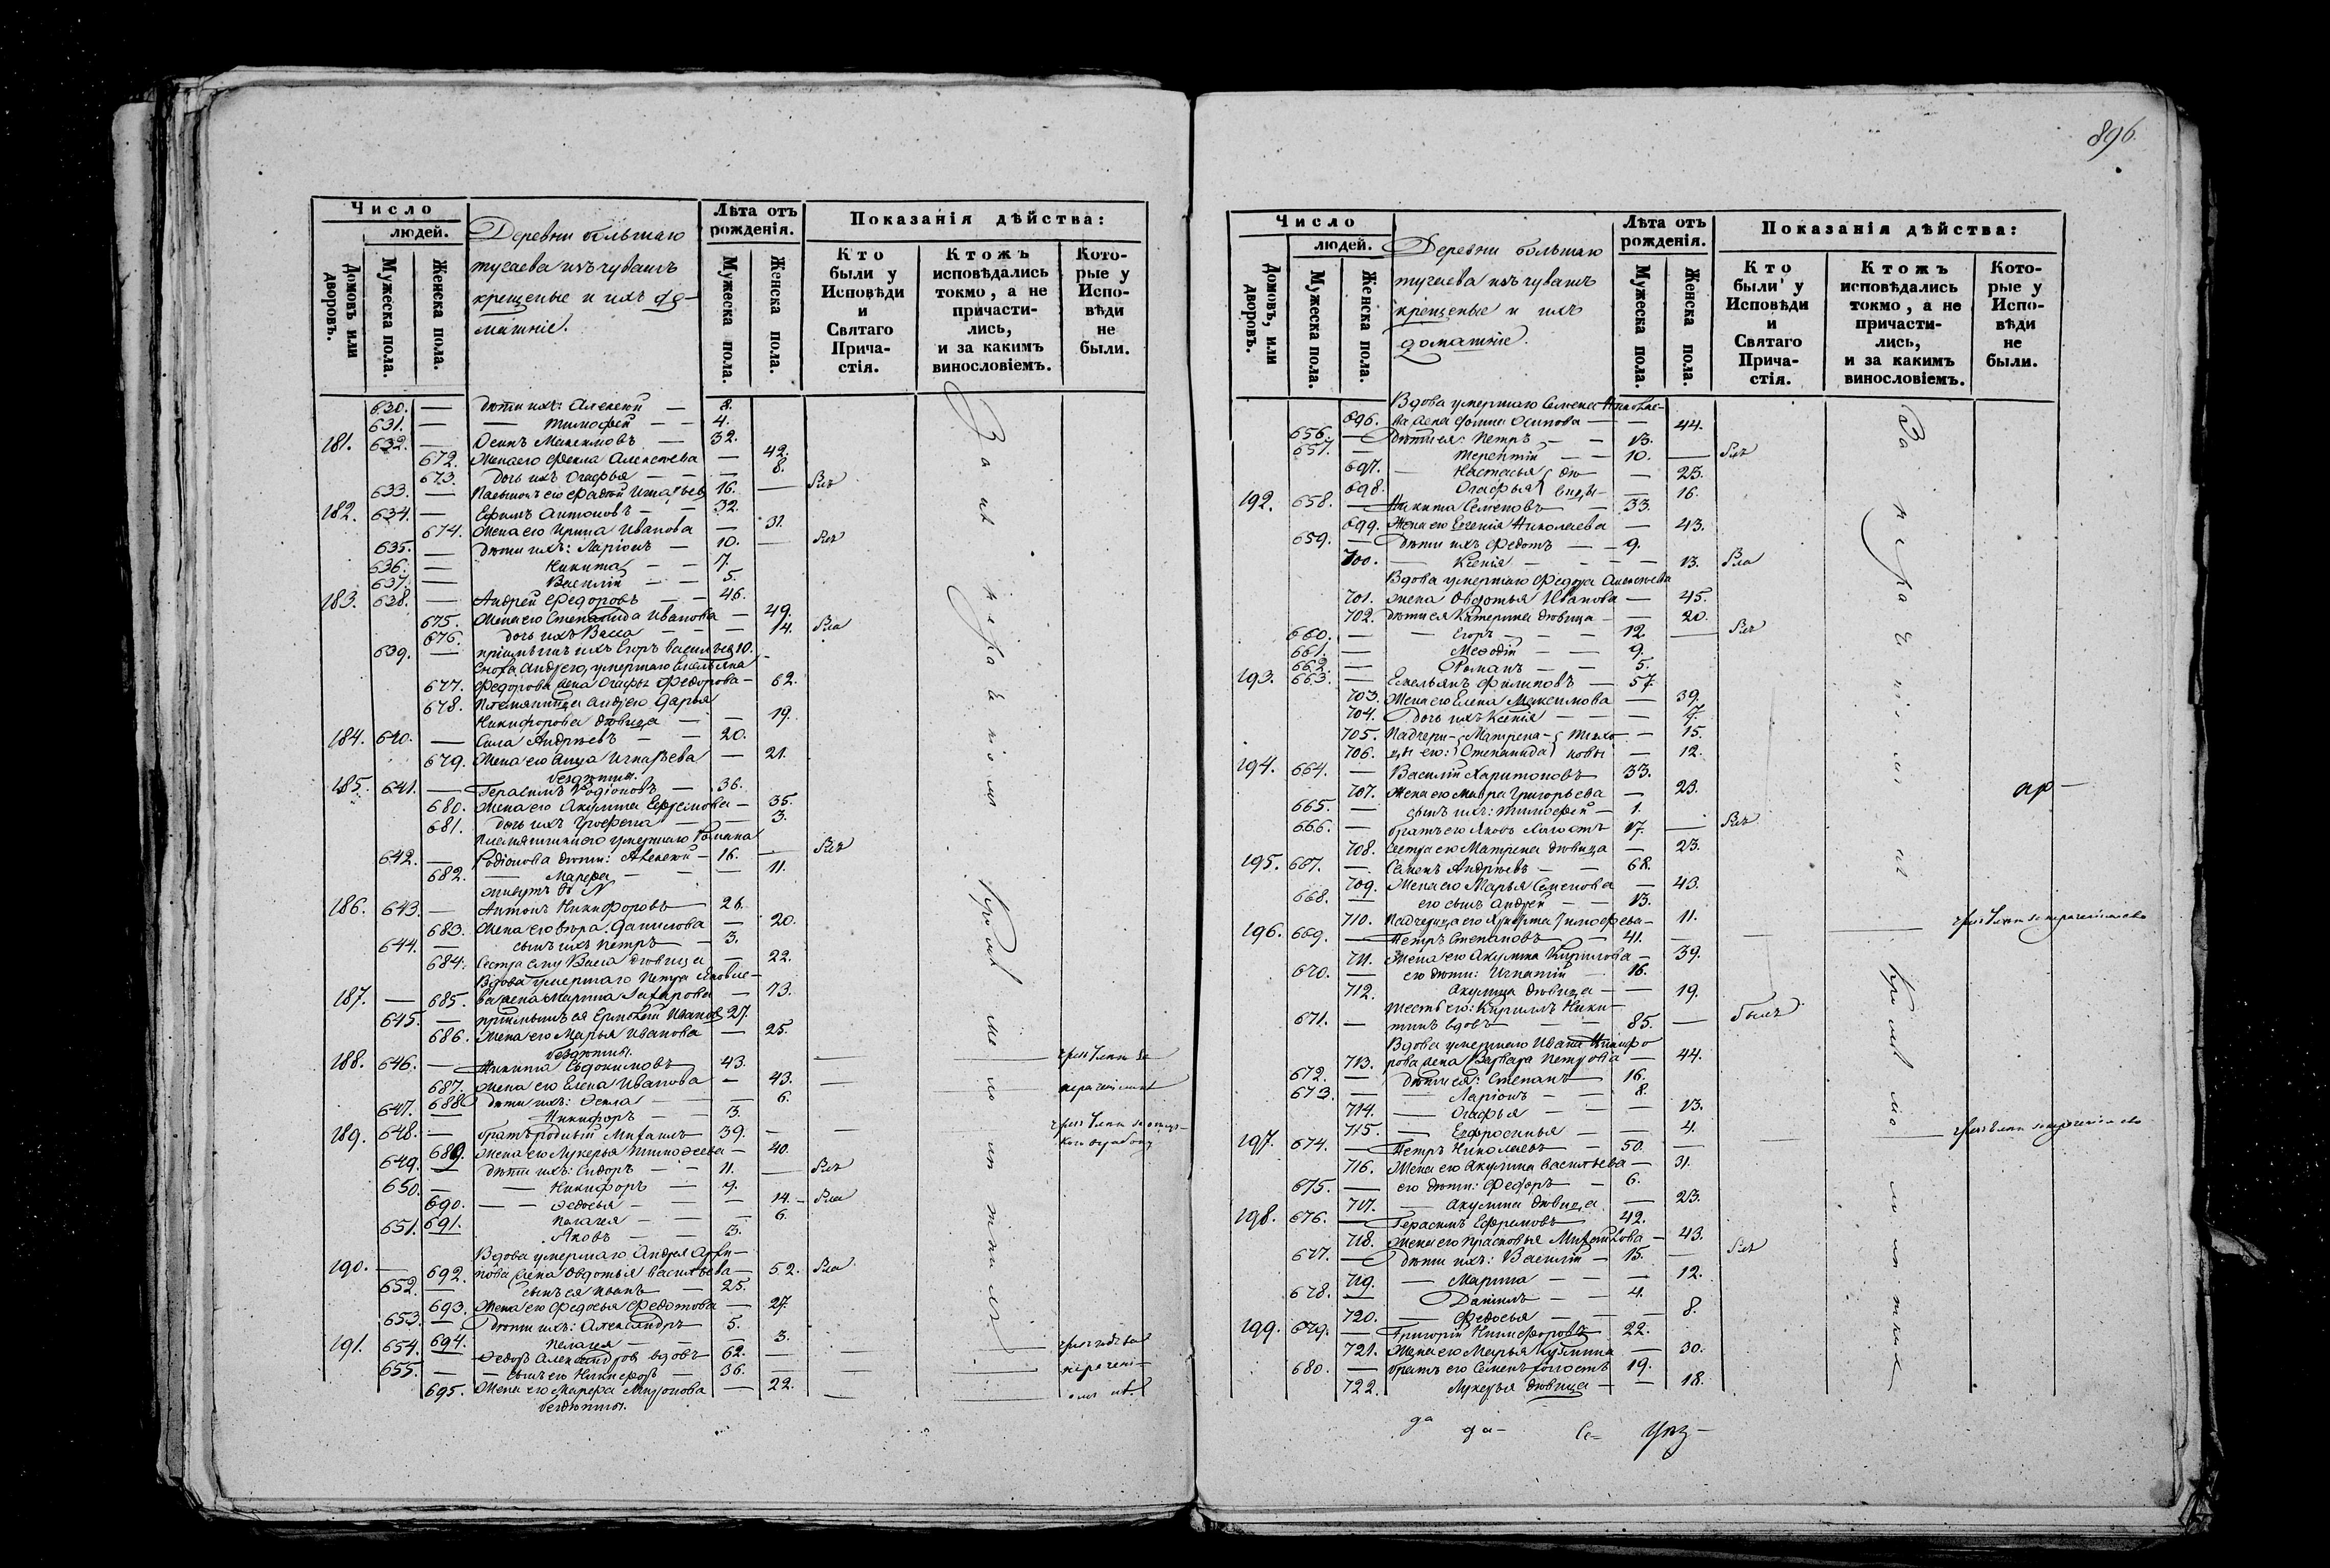 896.
Число
людей.
Домовъ или дворовъ.
Мужеска пола.
Женска пола.
Деревни большаго
тугаева изъ чувашъ
крещеные и ихъ до-
машніе.
Лѣта отъ рожденія.
Мужеска пола.
Женска пола.
Показанія дѣйства:
Кто были у Исповѣди и Святаго Прича-стія.
Ктожъ исповѣдались токмо, а не причасти-лись, и за какимъ винословіемъ.
Кото-рые у Испо-вѣди не были.
630. — дѣти ихъ: Алексей — 8.
631. — — Тимофей — — 4.
181. 632. — Осипъ Максимовъ — 32.
672. Жена его Фекла Алексѣева — 42.
673. дочь ихъ Огафья — — 8.
633. — 16. —
182. 634. — Ефимъ Антоновъ — — 32.
674. Жена его Ирина Иванова — 31.
635. — дѣти ихъ: Ларіонъ — 10. —
636. — Никита — — 7.
637. — Василій — — 5.
183. 638. — Андрей Федоровъ — — 46.
675. Жена его Степанида Иванова — 49.
676. дочь ихъ Васса — — — 14.
639. — пріимышъ ихъ Егоръ Васильевъ 10.
Сноха Андрею, умершаго Емельяна
677. Федорова жена Огафья Федорова — 62.
678. Племянница Андрею Дарья
Никифорова дѣвица — — 19.
184. 640. — Сила Андрѣевъ — — 20.
679. Жена его Анна Игнатьева — 21.
бездѣтны.
185. 641. — Герасимъ Родіоновъ — 36.
680. Жена его Акулина Ефремова — 35.
681. дочь ихъ — — 3.
Племянники его умершаго Романа
642. — Родіонова дѣти: Алексей — 16. —
682. — Марфа — — — 11.
живутъ въ N
186. 643. — Антонъ Никифоровъ — 26.
683. Жена его Вѣра Данилова — 20.
644. — сынъ ихъ Петръ — 3.
684. Сестра ему Васса дѣвица — 22.
Вдова умершаго Петра Яковле-
187. — 685. ва жена Марина Захарова — 73.
645. — пріимышъ ея Ермолай Ивановъ 27.
686. Жена его Марья Иванова — 25.
бездѣтны.
188. 646. — Никита Евдокимовъ 43.
687. Жена его Елена Иванова — 43. —
688 дѣти ихъ: Фекла — — 6.
647. — Никифоръ — — 3.
189. 648. — братъ родный Михаилъ — 39. —
689. Жена его Лукерья Тимофеева — 40.
649. — дѣти ихъ: Сидоръ — — 11. —
650. — — Никифоръ — 9.
690. — — Федосья — — 14. —
691. Палагея — — — 6.
651. — Яковъ — — 3.
Вдова умершаго Андрея Архи-
190. — 692. пова жена Овдотья Васильева — 52.
652. — сынъ ея Иванъ — 25.
693. Жена его Федосья Федотова — 27.
653. — дѣти ихъ: Александръ 5.
694. Пелагея — — 3.
191. 654. — Федоръ Александровъ вдовъ — 62. —
655. — — сынъ его Никифоръ — 36. —
695. Жена его Марфа Миронова — 22.
бездѣтны.
За нераченіемъ
Число
людей.
Домовъ, или дворовъ.
Мужеска пола.
Женска пола.
Деревни большаго
тугаева изъ чувашъ
крещеные и ихъ
домашніе.
Лѣта отъ рожденія.
Мужеска пола.
Женска пола.
Показанія дѣйства:
Кто были у Исповѣди и Святаго Прича-стія.
Ктожъ исповѣдались токмо, а не причасти-лись, и за какимъ винословіемъ.
Кото-рые у Испо-вѣди не были.
Вдова умершаго Семена Яковле-
696. ва жена Осипова — — 44.
656. — Дѣти ея: Петръ — — 13.
657. — Терентій — — 10. —
697. — Настасья дѣ — 23.
698. Огафья вицы — — 16.
192. 658. — Никита Семеновъ — 33.
699. Жена его Евгенія Николаева — 43.
659. — дѣти ихъ Федотъ — — 9.
700. — Ксенія — — — 13.
Вдова умершаго Федора Алексѣева
701. жена Овдотья Иванова — 45.
702. дѣти ея Катерина дѣвица — — 20.
660. — — Егоръ — — 12. —
661. — Мефодій — — 9.
662. — Романъ — — 5.
193. 663. — Емельянъ Филиповъ — 57.
703. Жена его Елена Максимова — 39.
704. дочь ихъ Ксенія — — — 7.
705. Падчери- Матрена Тихо — 15.
706. цы его: Степанида новы — 12.
194. 664. — Василій Харитоновъ 33.
707. Жена его Мавра Григорьева — 23.
665. — сынъ ихъ: Тимофей — 1.
666. — братъ его Яковъ холостъ 17. —
708. Сестра его Матрена дѣвица — 23.
195. 667. — Семенъ Андрѣевъ — — 68.
709. Жена его Марья Семенова — 43.
668. — его сынъ Андрей — — 13.
710. Падчерица его Тимофева — 11.
196. 669. — Петръ Степановъ — 41. —
711. Жена его Акулина Кирилова — 39.
670. — его дѣти: Игнатій — 16.
712. Акулина дѣвица — — 19.
тесть его: Кириллъ Ники-
671. — тинъ вдовъ — — 85. — былъ
Вдова умершаго Ивана Никифо
713. рова жена Варвара Петрова — 44.
672. — дѣти ея: Степанъ — 16.
673. — — Ларіонъ — — 8.
714. — Огафья — — — 13.
715. — Евфросинья — — 4.
197. 674. — Петръ Николаевъ — 50. —
716. Жена его Акулина Васильева — 31.
675. — его дѣти: Федоръ — 6.
717. — Акулина дѣвица — 23.
198. 676. — Герасимъ Ефремовъ 42.
718. Жена его Прасковья Михайлова — 43.
677. — дѣти ихъ: Василій — 15. —
719. — Марина — — — 12.
678. — Данилъ — — 4.
720. — Федосья — — 8.
199. 679. — Григорій Никифоровъ 22.
721. Жена его Марья — 30.
680. — братъ его Семенъ холостъ 19.
722. Лукерья дѣвица — — 18.
За нераченіемъ
да да-